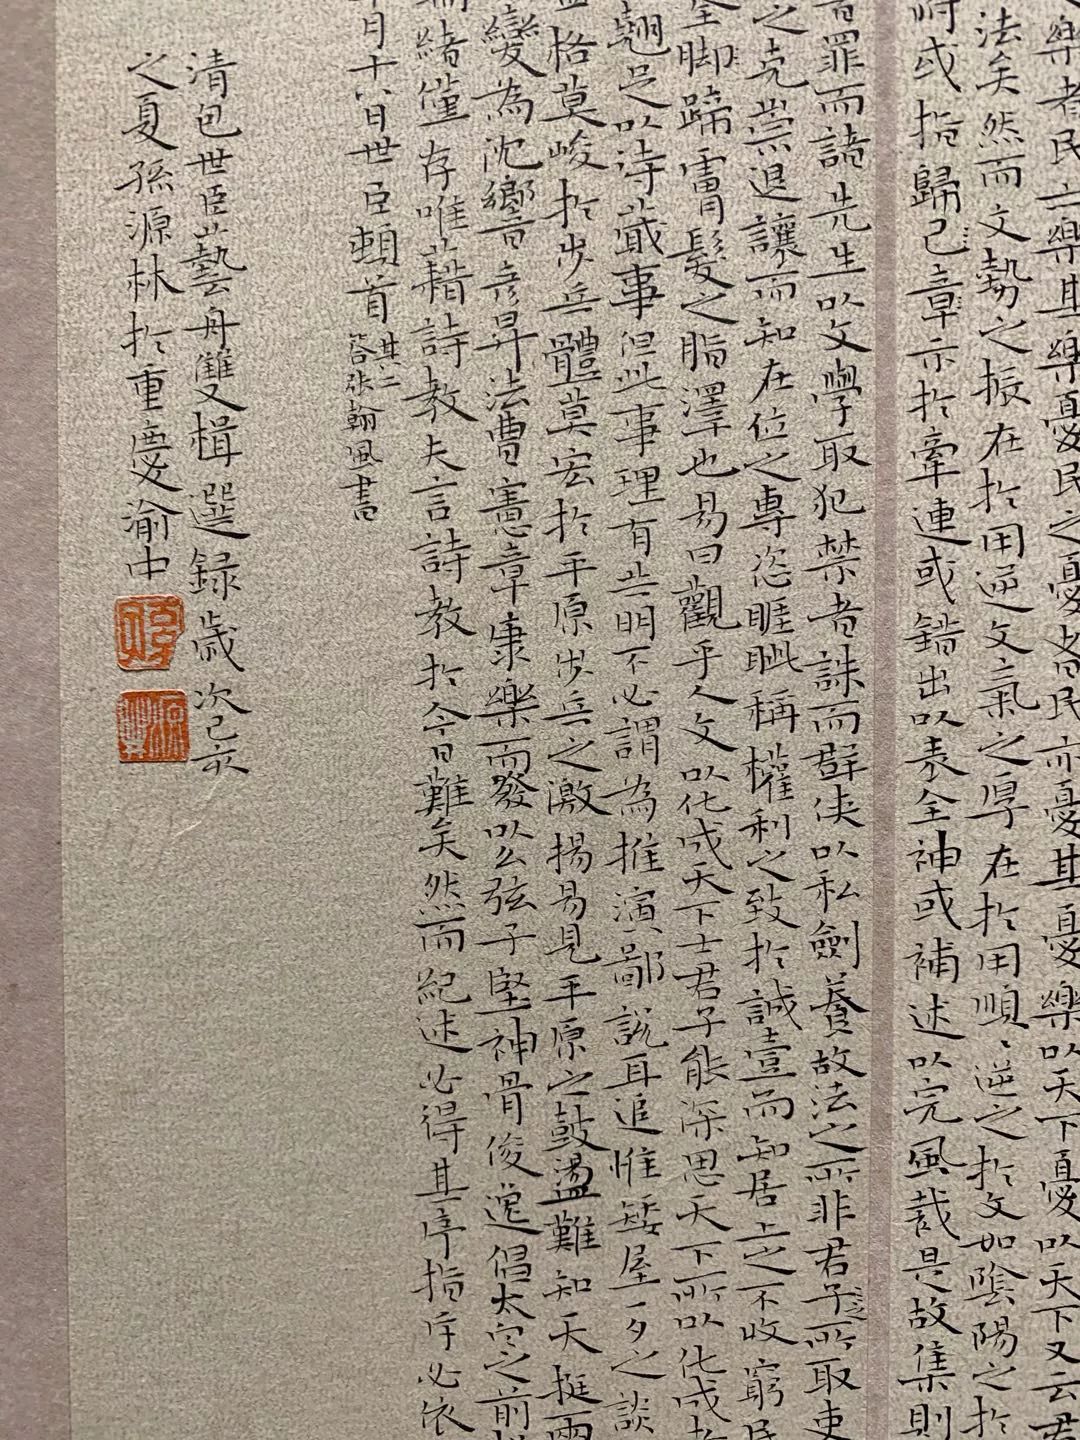 樂者民亦樂其樂憂民之憂者民亦憂其憂樂以天下憂以天下又云君
法矣然而文勢之振在於用逆文氣之厚在於用順〻逆之於文如陰陽之於
將或指歸已章亦於牽連或錯出以表全神或補述以完風裁是故集則
罪而諸先生以文學取犯禁者誅而群俠以私劍養故法之所非君子之所取吏
之克崇退讓而知在位之專恣睢眦稱權利之致於誠壹而知居上之不收窮民
全脚蹄膏髮之脂澤也易曰觀乎人文以化成天下士君子能深思天下所以化成
翹足以待蕆事但此事理有些明不必謂為推演鄙說耳追惟矮屋一夕之談
格莫峻於步兵體莫宏於平原步兵之激揚易見平原之鼓盪難知天挺兩
變為沈響音彥昇法曹憲章康樂而發以么弦子堅神骨俊逸倡太白之前
緒僅存唯藉詩教夫言詩教於今日難矣然而紀述必得其序指斥必依
月十六日世臣頓首 其二答張翰風書
清包世臣藝舟雙楫選錄歲次己亥
之夏孫源林於重慶渝中